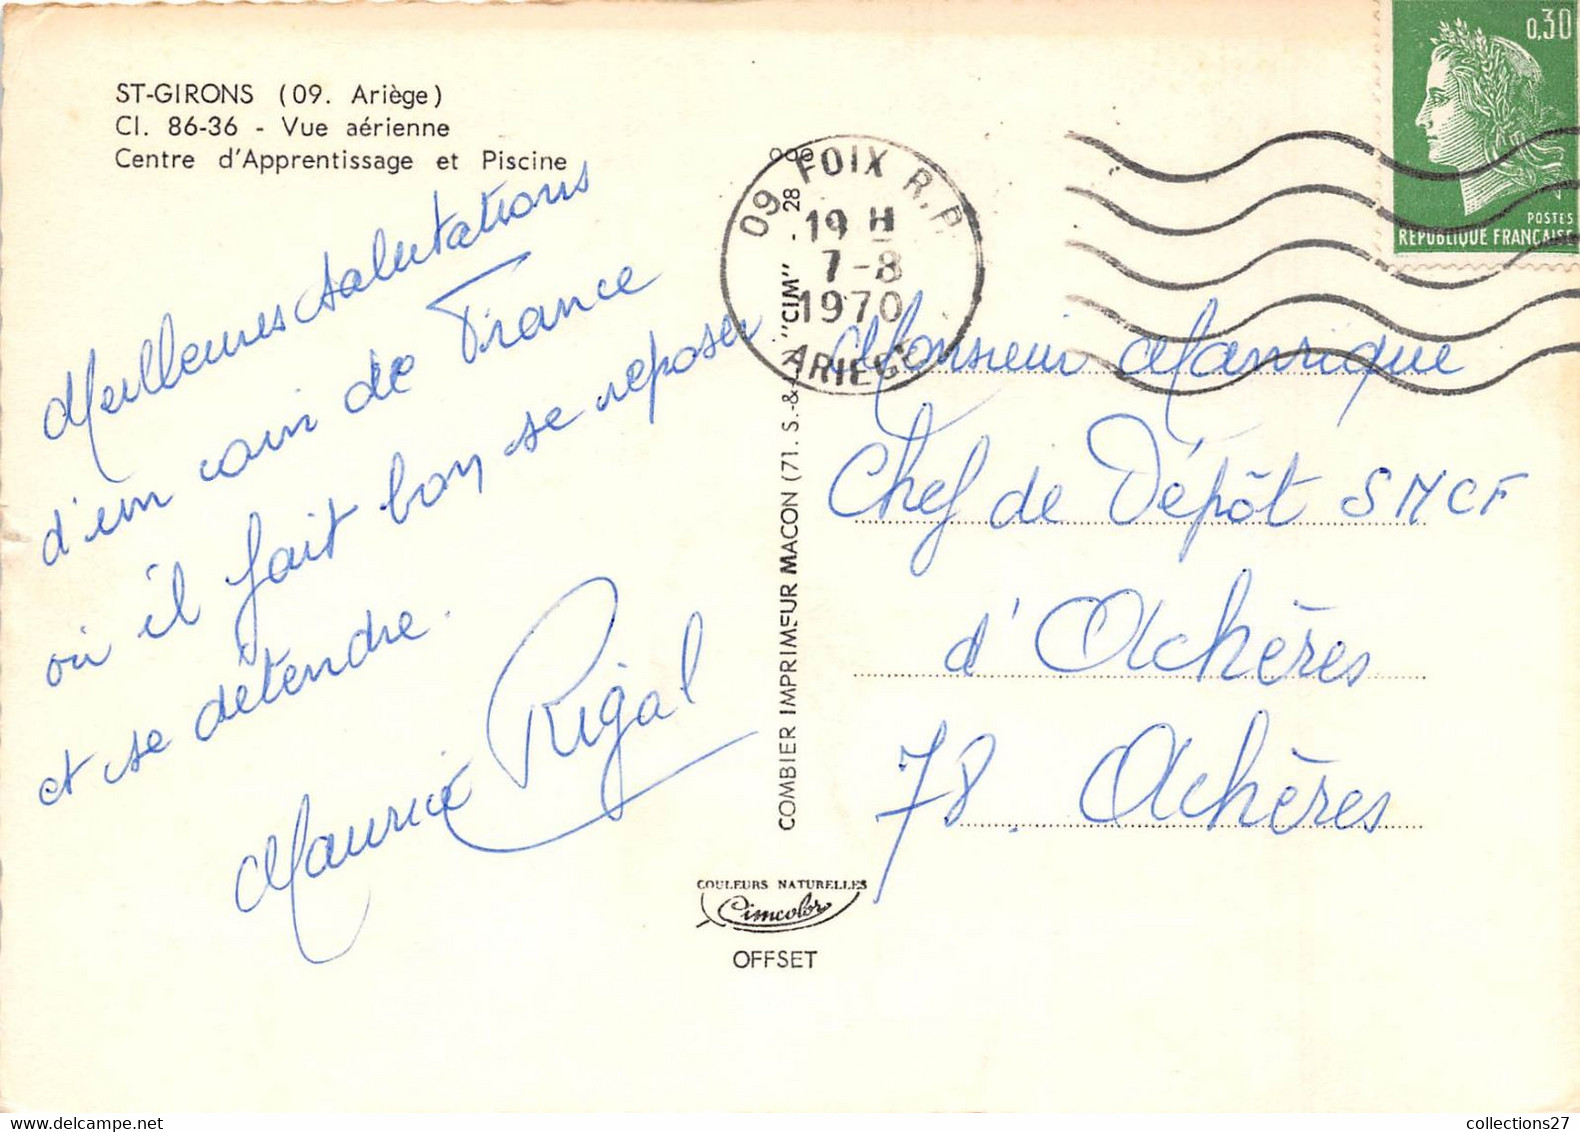 ST-GIRONS (09. Ariège)
Cl. 86-36 - Vue aérienne
Centre d'Apprentissage et Piscine
Meilleures salutations
d'un coin de France
où il fait bon se reposer
et se détendre.
Maurice Rigal
COMBIER IMPRIMEUR MACON (71. S.-&-L.) "CIM" - 28
COULEURS NATURELLES
Cimcolor
OFFSET
09 FOIX R.P.
19 H
7-8
1970
ARIEGE
0,30
POSTES
REPUBLIQUE FRANCAISE
Monsieur Manrique
Chef de Dépôt SNCF
d'Achères
78. Achères
collections27